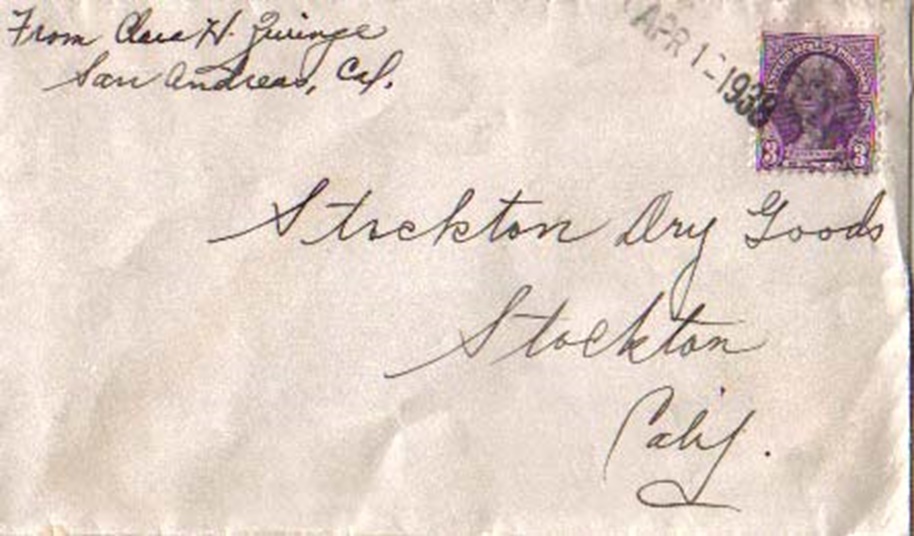 From Clara H. Zwinge
San Andreas, Cal.
APR 12 1938
3 3
Stockton Dry Goods
Stockton
Calif.